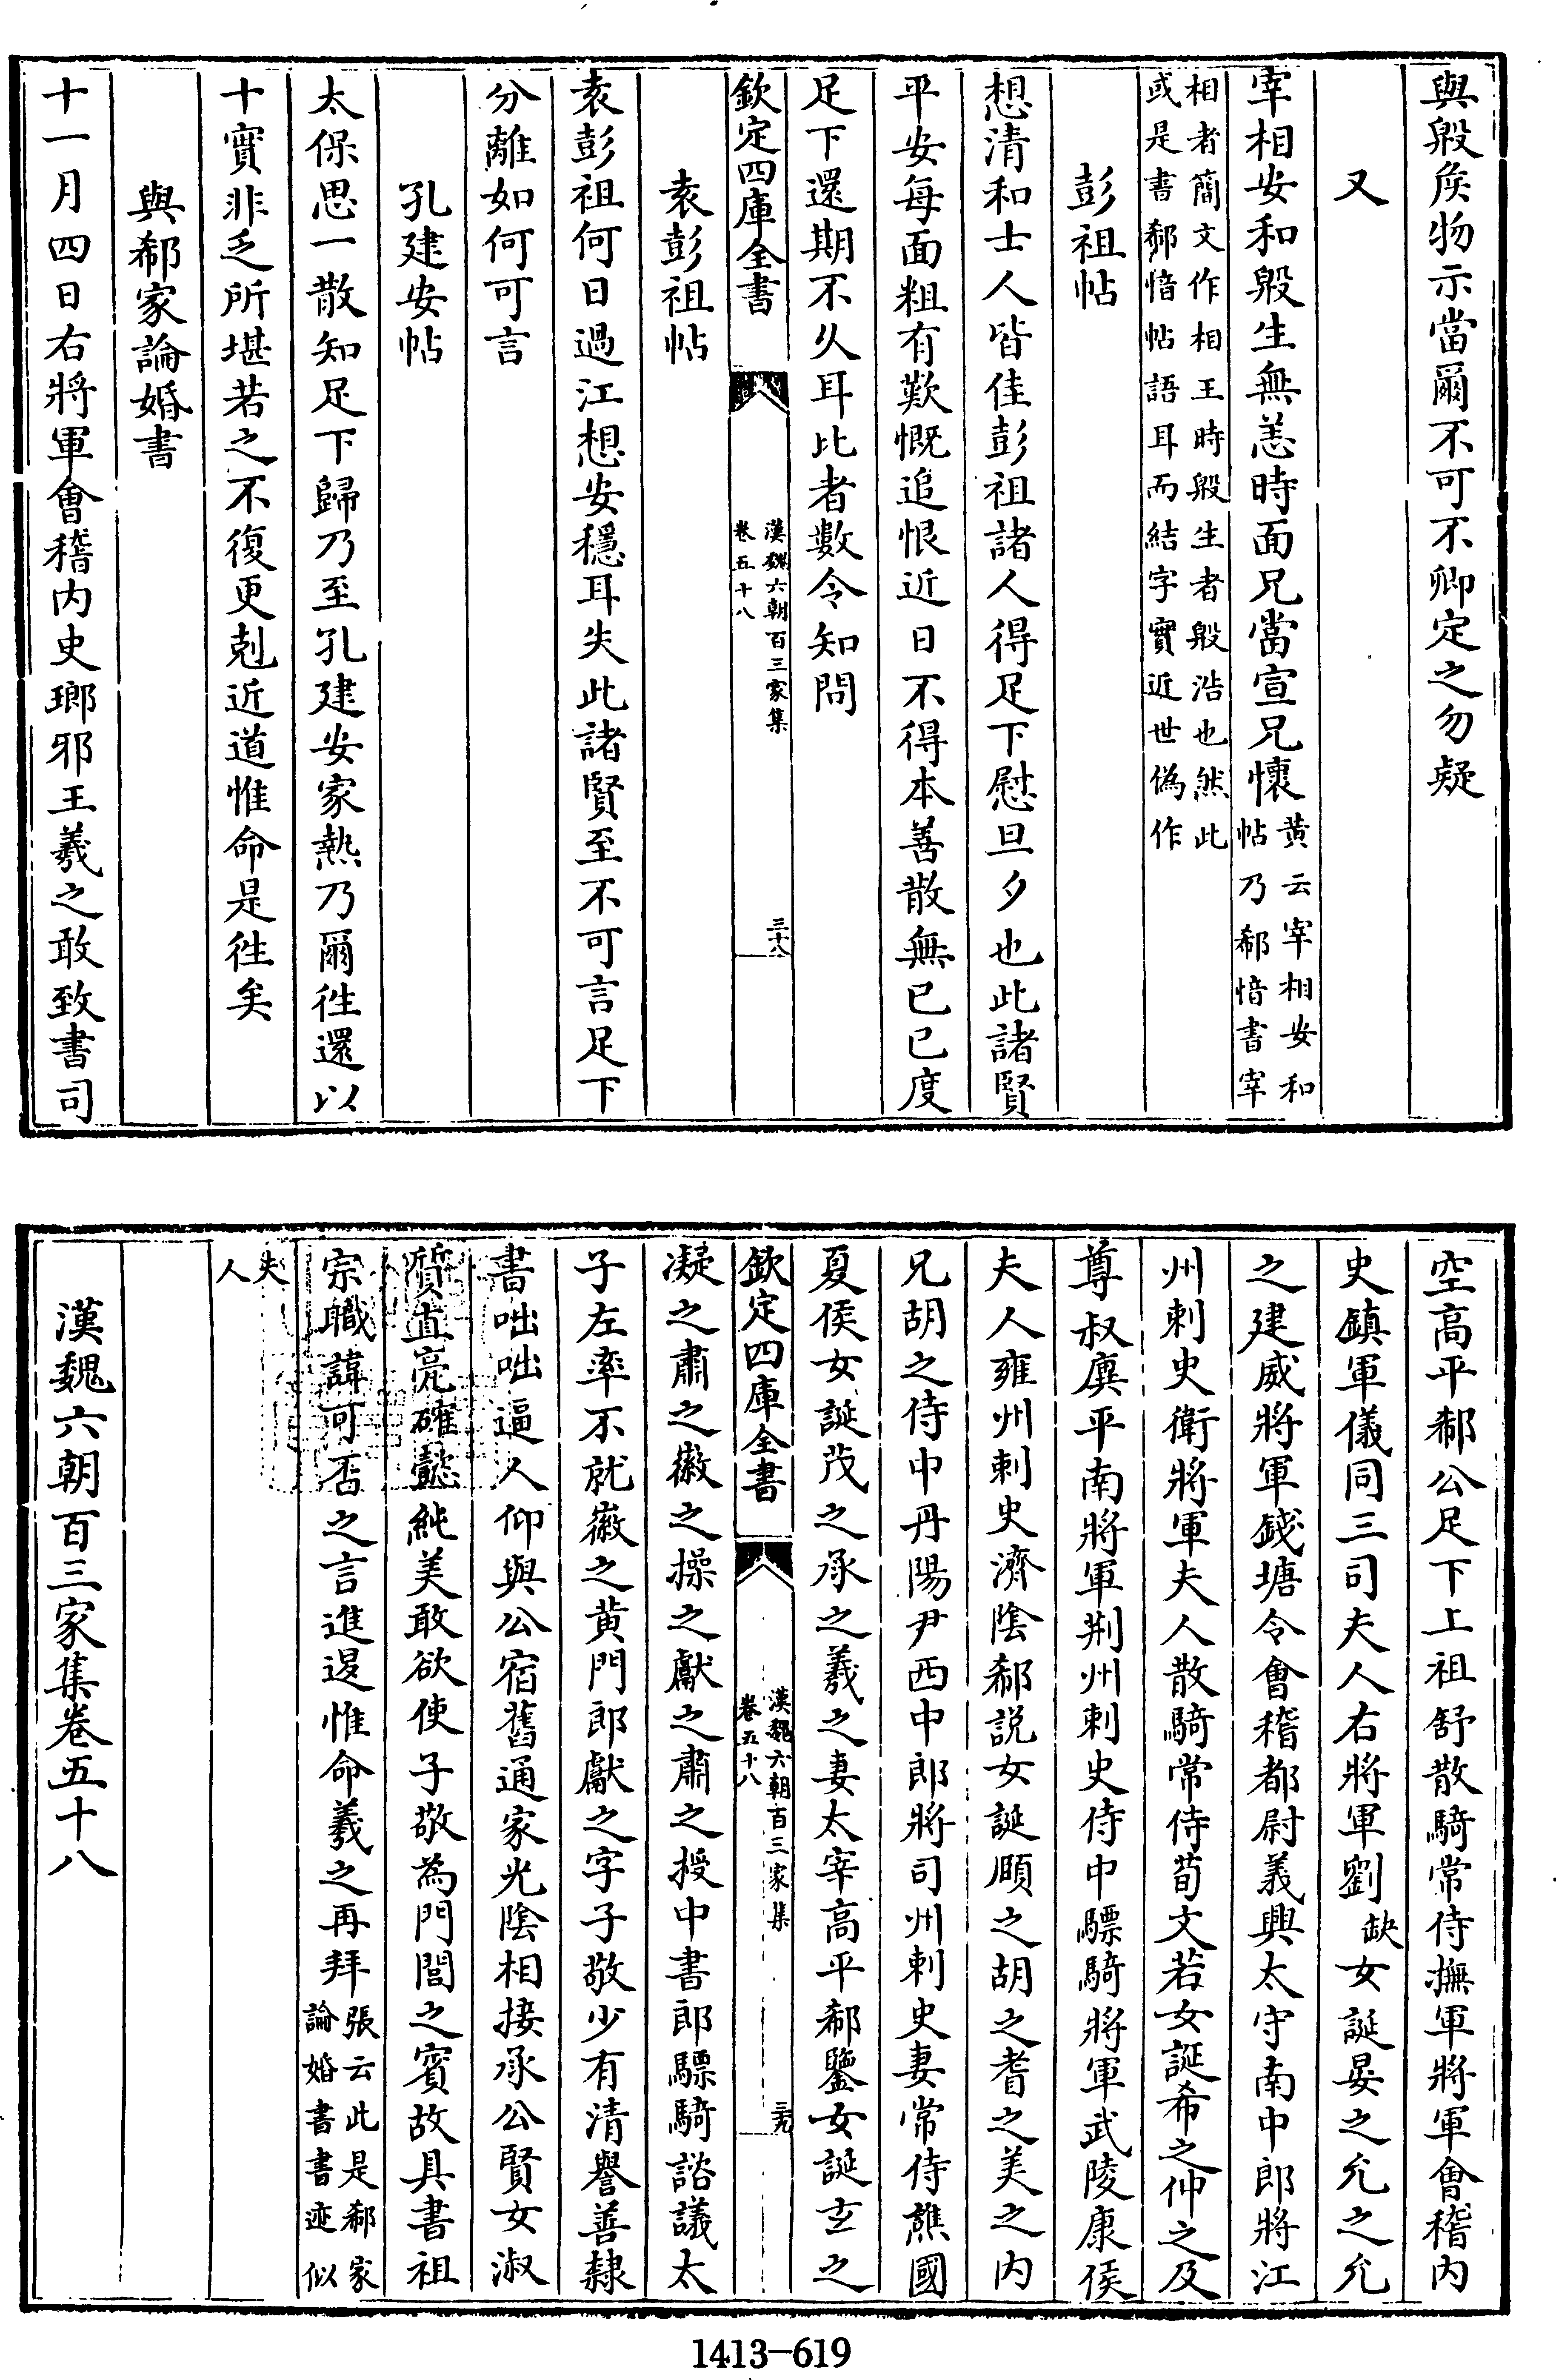 與殷侯物示當爾不可不卿定之勿疑
又
宰相安和殷生無恙時面兄當宣兄懷黄云宰相安和帖乃郗愔書宰
相者簡文作相王時殷生者殷浩也然此或是書郗愔帖語耳而結字實近世偽作
彭祖帖
想清和士人皆佳彭祖諸人得足下慰旦夕也此諸賢
平安每面粗有歎慨追恨近日不得本善散無已已度
足下還期不久耳比者數令知問
欽定四庫全書
漢魏六朝百三家集
卷五十八
三十八
袁彭祖帖
袁彭祖何日過江想安穩耳失此諸賢至不可言足下
分離如何可言
孔建安帖
太保思一散知足下歸乃至孔建安家熱乃爾徃還以
十實非乏所堪若之不復更剋近道惟命是徃矣
與郗家論婚書
十一月四日右將軍會稽内史瑯邪王羲之敢致書司
空高平郗公足下上祖舒散騎常侍撫軍將軍會稽内
史鎮軍儀同三司夫人右將軍劉缺女誕晏之允之允
之建威將軍錢塘令會稽都尉義興太守南中郎將江
州刺史衛將軍夫人散騎常侍荀文若女誕希之仲之及
尊叔廙平南將軍荆州刺史侍中驃騎將軍武陵康侯
夫人雍州刺史濟陰郗説女誕頤之胡之耆之美之内
兄胡之侍中丹陽尹西中郎將司州刺史妻常侍譙國
夏侯女誕茂之承之羲之妻太宰高平郗鑒女誕玄之
欽定四庫全書
漢魏六朝百三家集
卷五十八
三十九
凝之肅之徽之操之獻之肅之授中書郎驃騎諮議太
子左率不就徽之黄門郎獻之字子敬少有清譽善隸
書咄咄逼人仰與公宿舊通家光陰相接承公賢女淑
質直亮確懿純美敢欲使子敬為門閭之賓故具書祖
宗職諱可否之言進退惟命羲之再拜張云此是郗家論婚書書迹似
夫人
漢魏六朝百三家集卷五十八
1413-619